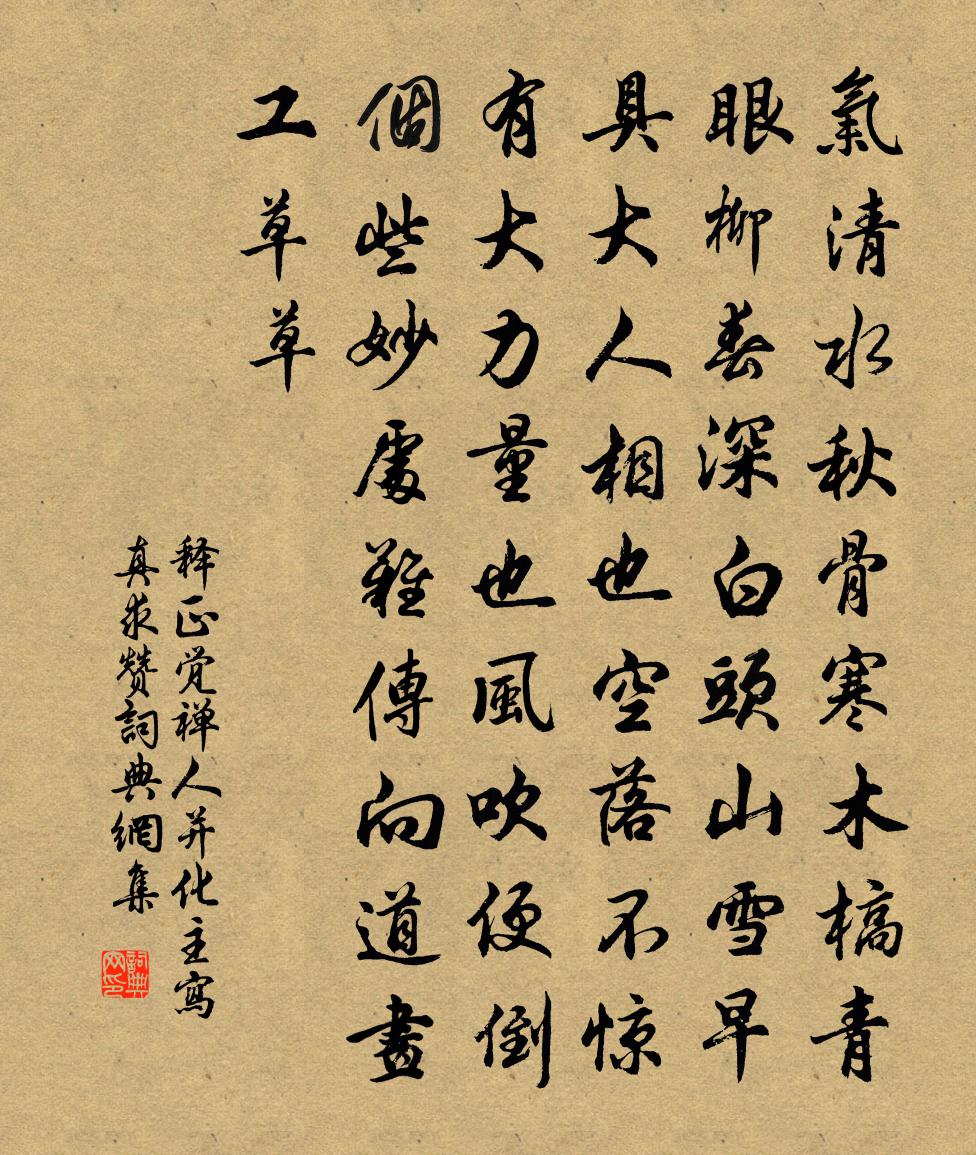 氣清水秋骨寒木槁青
眼柳春深白頭山雪早
具大人相也空落不惊
有大力量也風吹便倒
個些妙處難傳向道畫
工草草
释正觉禅人并化主寫
真求赞詞典網集
詞典网印